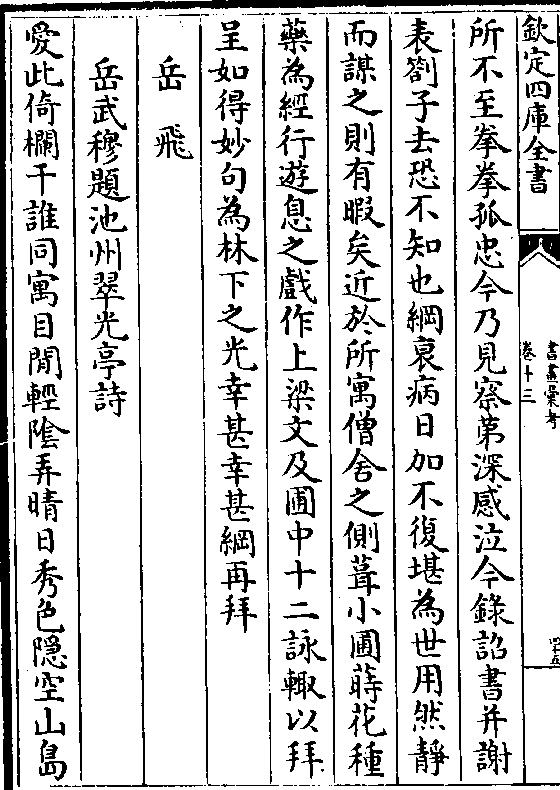 欽定四庫全書
書畫彙考
卷十三
四十五
所不至拳拳孤忠今乃見察第深感泣今錄詔書并謝
表劄子去恐不知也綱衰病日加不復堪為世用然靜
而謀之則有暇矣近於所寓僧舍之側葺小圃蒔花種
藥為經行遊息之戲作上梁文及圃中十二詠輙以拜
呈如得妙句為林下之光幸甚幸甚綱再拜
岳飛
岳武穆題池州翠光亭詩
愛此倚欄干誰同寓目閒輕陰弄晴日秀色隱空山島